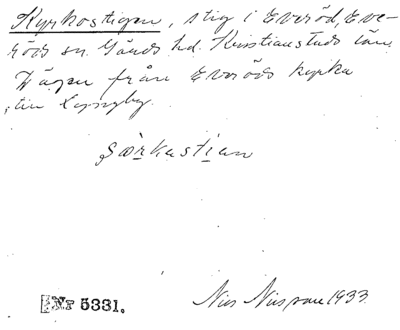 Kyrkostigen, stig i Everöd, Eve-
röds sn. Gärds hd. Kristianstads län.
Vägen från Everöds kyrka
till Lyngby.
Nr 5331.
Nils Nilsson 1933